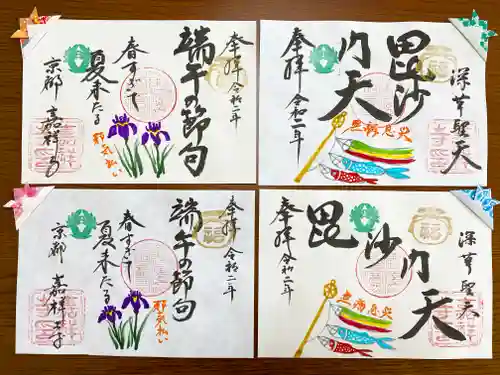 奉拝 令和二年
端午の節句
春すぎて
夏来たる
邪気払い
京都 嘉祥寺
深草聖天
毘沙門天
奉拝 令和二年
無病息災
奉拝 令和二年
端午の節句
春すぎて
夏来たる
邪気払い
京都 嘉祥寺
深草聖天
毘沙門天
奉拝 令和二年
無病息災